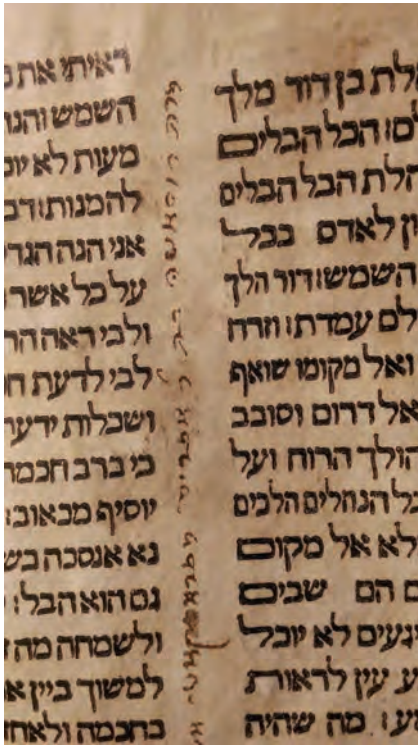 לת בן דוד מלך
לם: הבל הבלים
הלת הבל הבלים
ון לאדם בכל
השמש: דור הלך
לם עמדת: וזרח
ואל מקומו שואף
אל דרום וסובב
הולך הרוח ועל
כל הנחלים הלכים
לא אל מקום
ם הם שבים
יגעים לא יוכל
ע עין לראות
וע: מה שהיה
ראיתי את
השמש והנ
מעות לא יו
להמנות: דב
אני הנה הגד
על כל אשר
ולבי ראה הר
לבי לדעת ח
ושכלות ידע
כי ברב חכמ
יוסיף מכאוב:
נא אנסכה בש
גם הוא הבל:
ולשמחה מה ז
למשוך ביין א
בחכמה ולאח